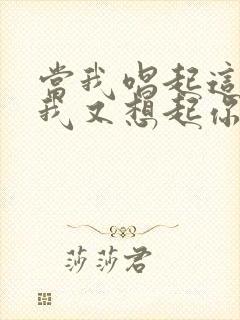 當我唱起這
我又想起你
莎莎君